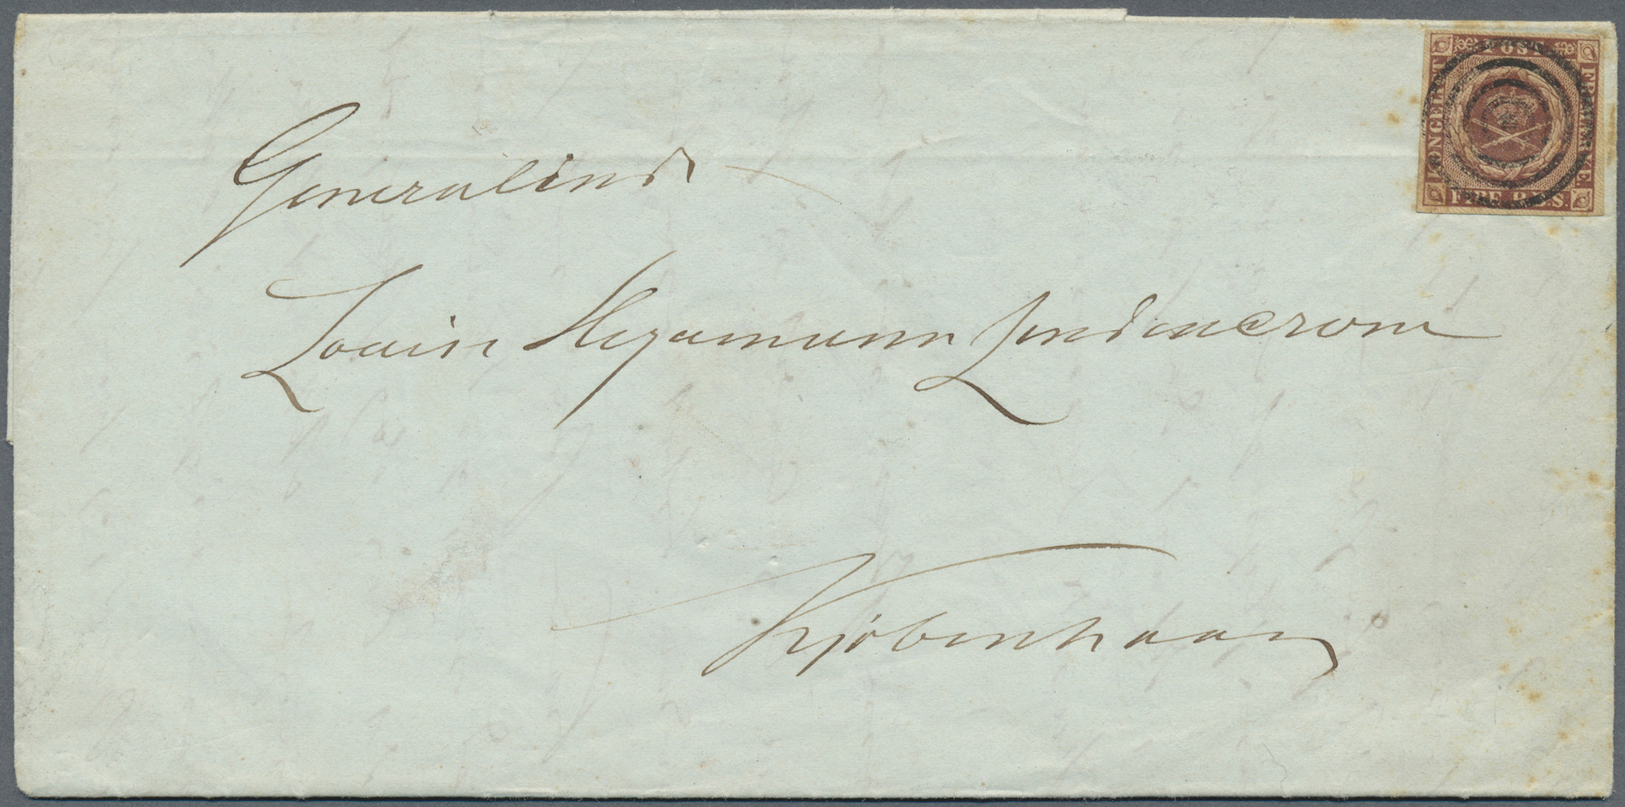 POST
KONGELIGT
FRIMÆRKE
FIRE R.B.S.
Generalinde
Louise Hegermann Lindencrone
Kjøbenhavn